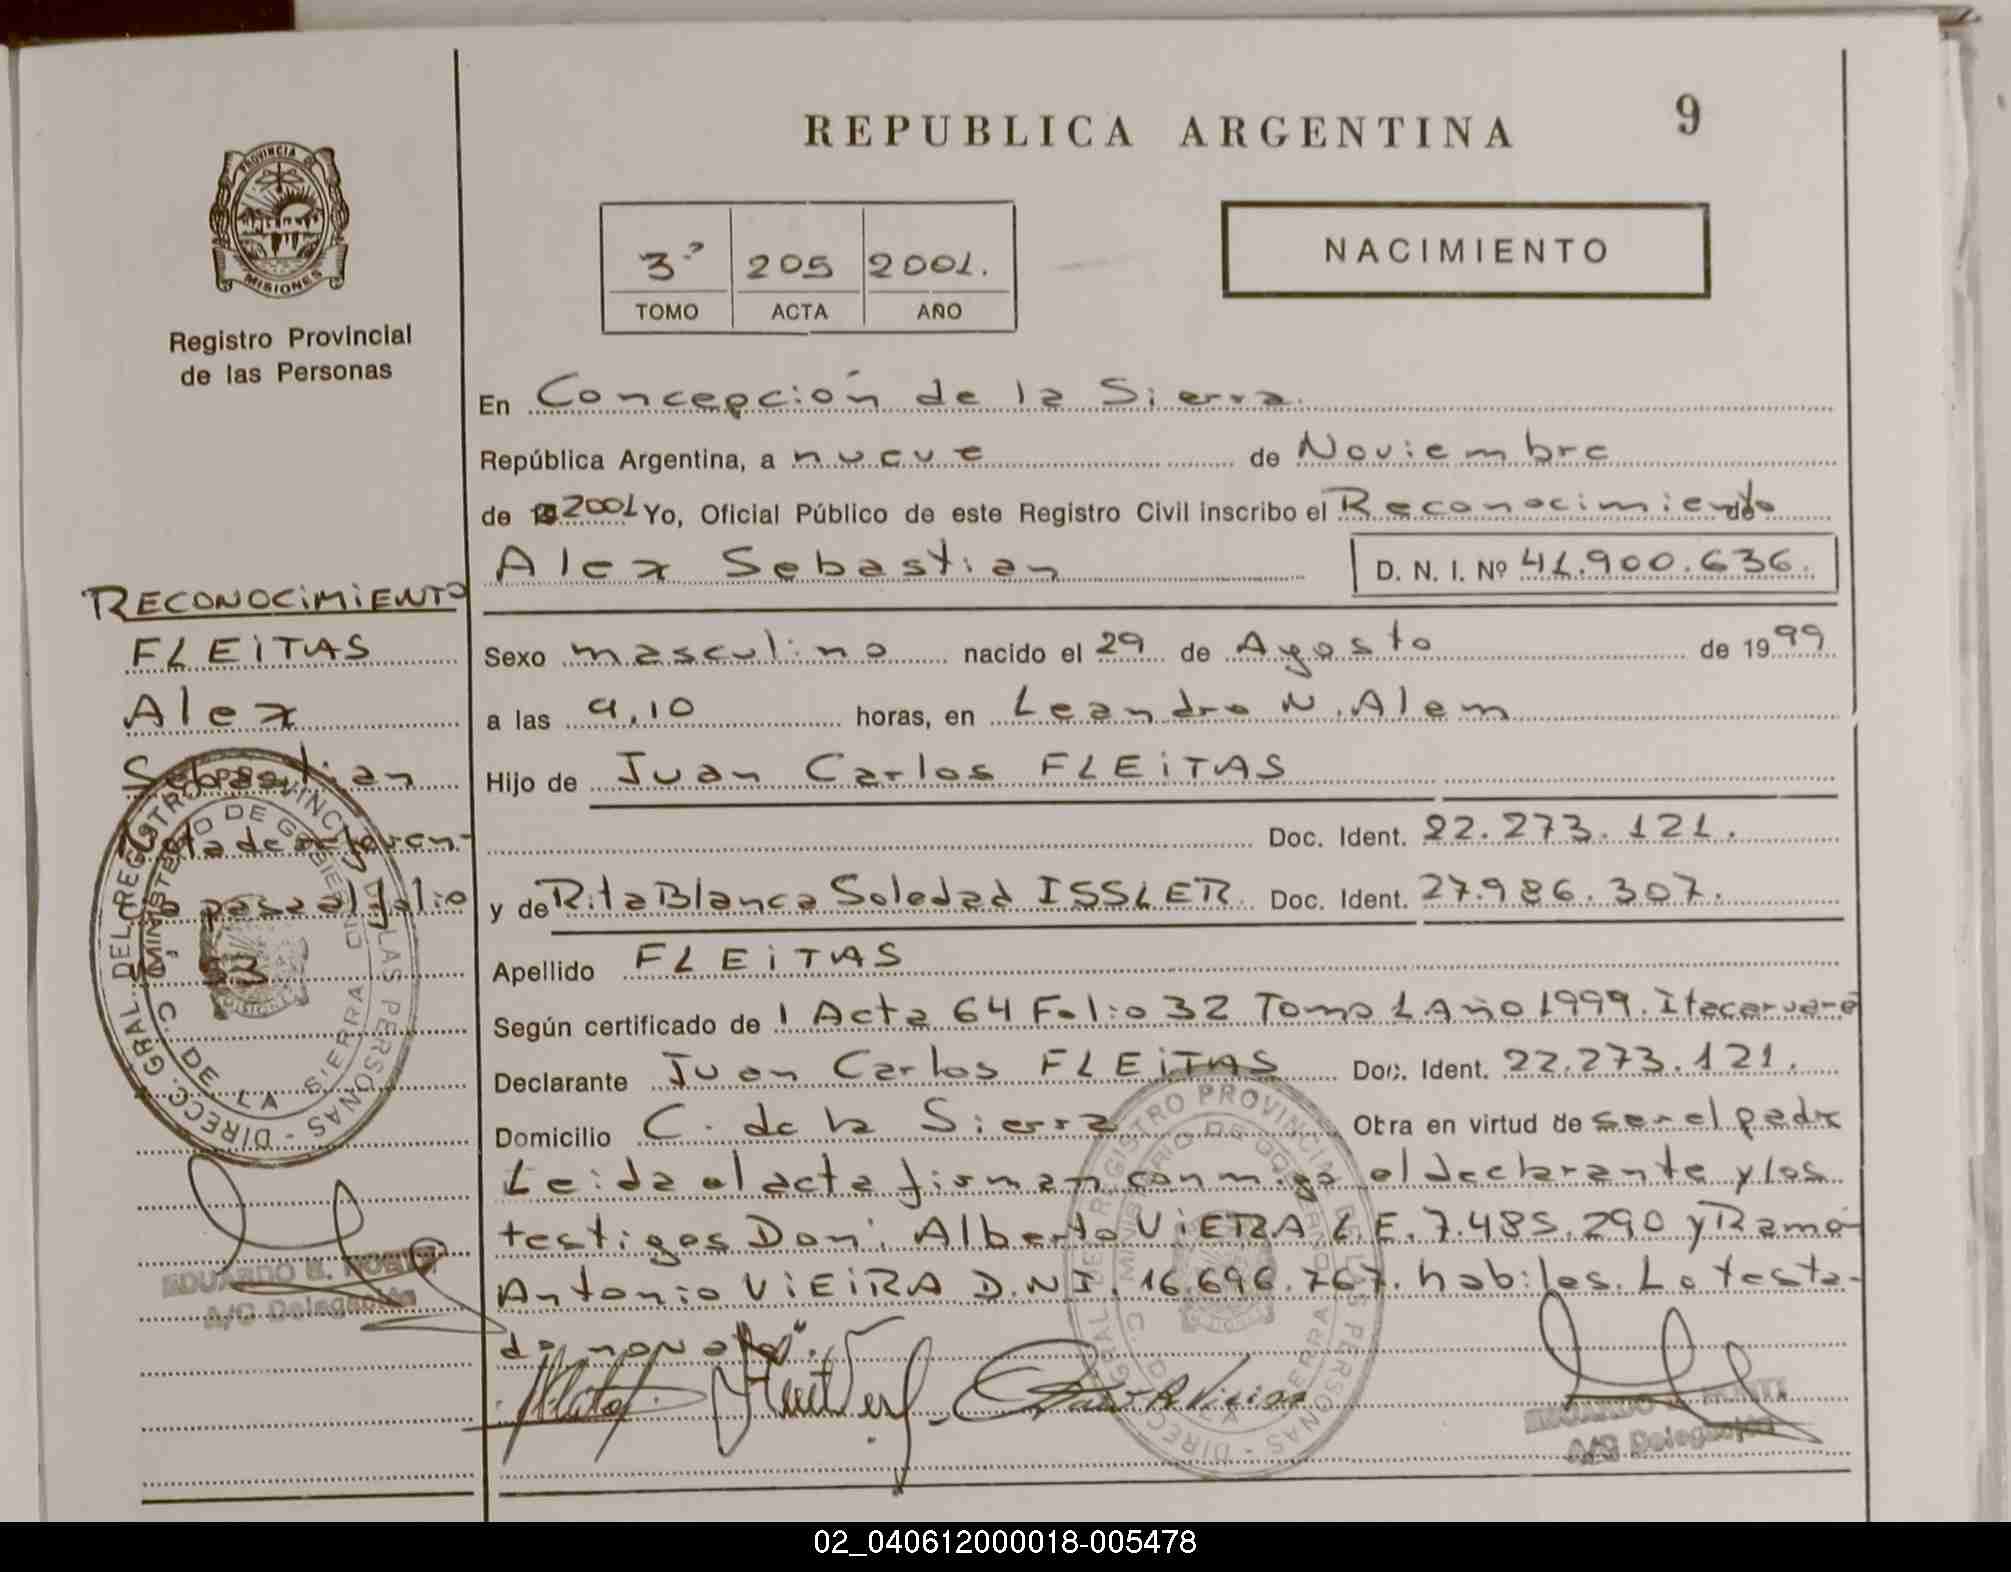 REPUBLICA ARGENTINA
9
PROVINCIA DE
MISIONES
Registro Provincial
de las Personas
3º 205 2001.
TOMO ACTA AÑO
NACIMIENTO
En Concepción de la Sierra
República Argentina, a nueve de Noviembre
de 19 2001 Yo, Oficial Público de este Registro Civil inscribo el Reconocimiento de
Alex Sebastian D. N. I. Nº 41.900.636.
Sexo masculino nacido el 29 de Agosto de 1999
a las 9,10 horas, en Leandro N. Alem
Hijo de Juan Carlos FLEiTAS
Doc. Ident. 22.273.121.
y de Rita Blanca Soledad ISSLER Doc. Ident. 27.986.307.
Apellido FLEiTAS
Según certificado de 1 Acta 64 Folio 32 Tomo 1 Año 1999. Itacaruaré
Declarante Juan Carlos FLEiTAS Doc. Ident. 22.273.121.
Domicilio C. de la Sierra Obra en virtud de ser el padre
Leida el acta firman conmigo el declarante y los
testigos Don: Alberto ViERA L.E. 7.485.290 y Ramó
Antonio ViEiRA D.N.I. 16.696.767. habiles. Lo testa-
do no vale".
RECONOCiMiENTO
FLEiTAS
Alex
Sebastian
Nota de referen-
cia pasa al folio
53
DIRECC. GRAL. DEL REGISTRO PROVINCIAL DE LAS PERSONAS
MINISTERIO DE GOBIERNO
C. DE LA SIERRA
EDUARDO
A/C Delegación
DIRECC. GRAL. DEL REGISTRO PROVINCIAL DE LAS PERSONAS
MINISTERIO DE GOBIERNO
C. DE LA SIERRA
EDUARDO
A/C Delegación
02_040612000018-005478